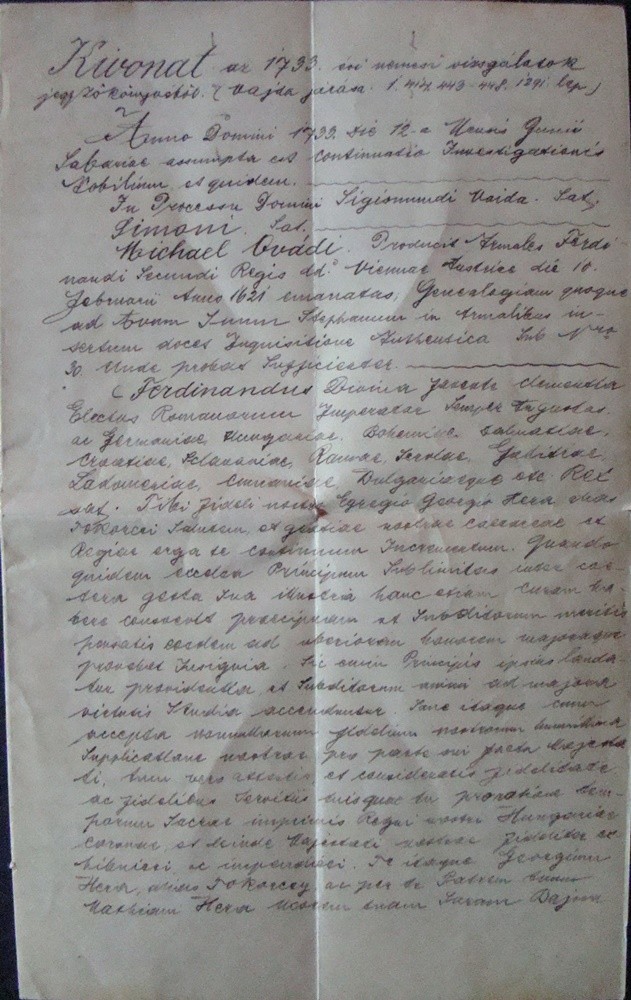 Kivonat az 1733. évi nemesi vizsgálatok
jegyzőkönyvéből. (Vajda járása. l. 414. 443-448. 1291. lap.)
Anno Domini 1733. Die 12-a Mensis Junii
Sabariae assumpta est continuatio Investigationis
Nobilium, et quidem.
In Processu Domini Sigismundi Vaida. Sat.
Simoni. Sat.
Michael Ovádi. Producit Armales Ferdi-
nandi Secundi Regis dd° Viennae Austriae die 10.
Februarii Anno 1621 emanatas, Genealogiam quoque
ad Avum Suum Stephanum in Armalibus in-
sertum docet Inquisitione Authentica Sub Nro
30. Unde probat Sufficienter.
(Ferdinandus Divina favente clementia
Electus Romanorum Imperator Semper Augustus.
ac Germaniae, Hungariae. Bohemiae. Dalmatiae,
Croatiae, Sclavoniae, Ramae, Serviae, Galitiae,
Lodomeriae, Cumaniae, Bulgariaeque etc. Rex
Tibi fideli nostro Egregio Georgio Hera alias
Pokorcei Salutem, et gratiae nostrae caesareae et
Regiae erga te continuum Incrementum. Quando
quidem excelsa Principum Sublimitas inter cae-
tera gesta Sua illustria hanc etiam curam ha-
bere consvevit praecipuam ut Subditorum meritis
pensatis eosdem ad uberiorem honorem majoraque
provehat Insignia. Sic enim Principis ipsius lauda-
tur providentia, et Subditorum animi ad majora
virtutis Studia accenduntur. Sane itaque cum
accepta nonnullorum fidelium nostrorum humillima
Supplicatione nostrae pro parte tui facta Majesta-
ti, tum vero attentis, et consideratis fidelitate
ac fidelibus Servitiis tuis quae tu pro ratione tem-
porum Sacrae imprimis Regni nostri Hungariae
coronae, et deinde Majestati nostrae fideliter ex-
hibuisti ac impendisti. Te itaque Georgium
Hera, alias Pokorcey, ac per te Patrem tuum
Mathiam Hera uxorem tuam Saram Bajom